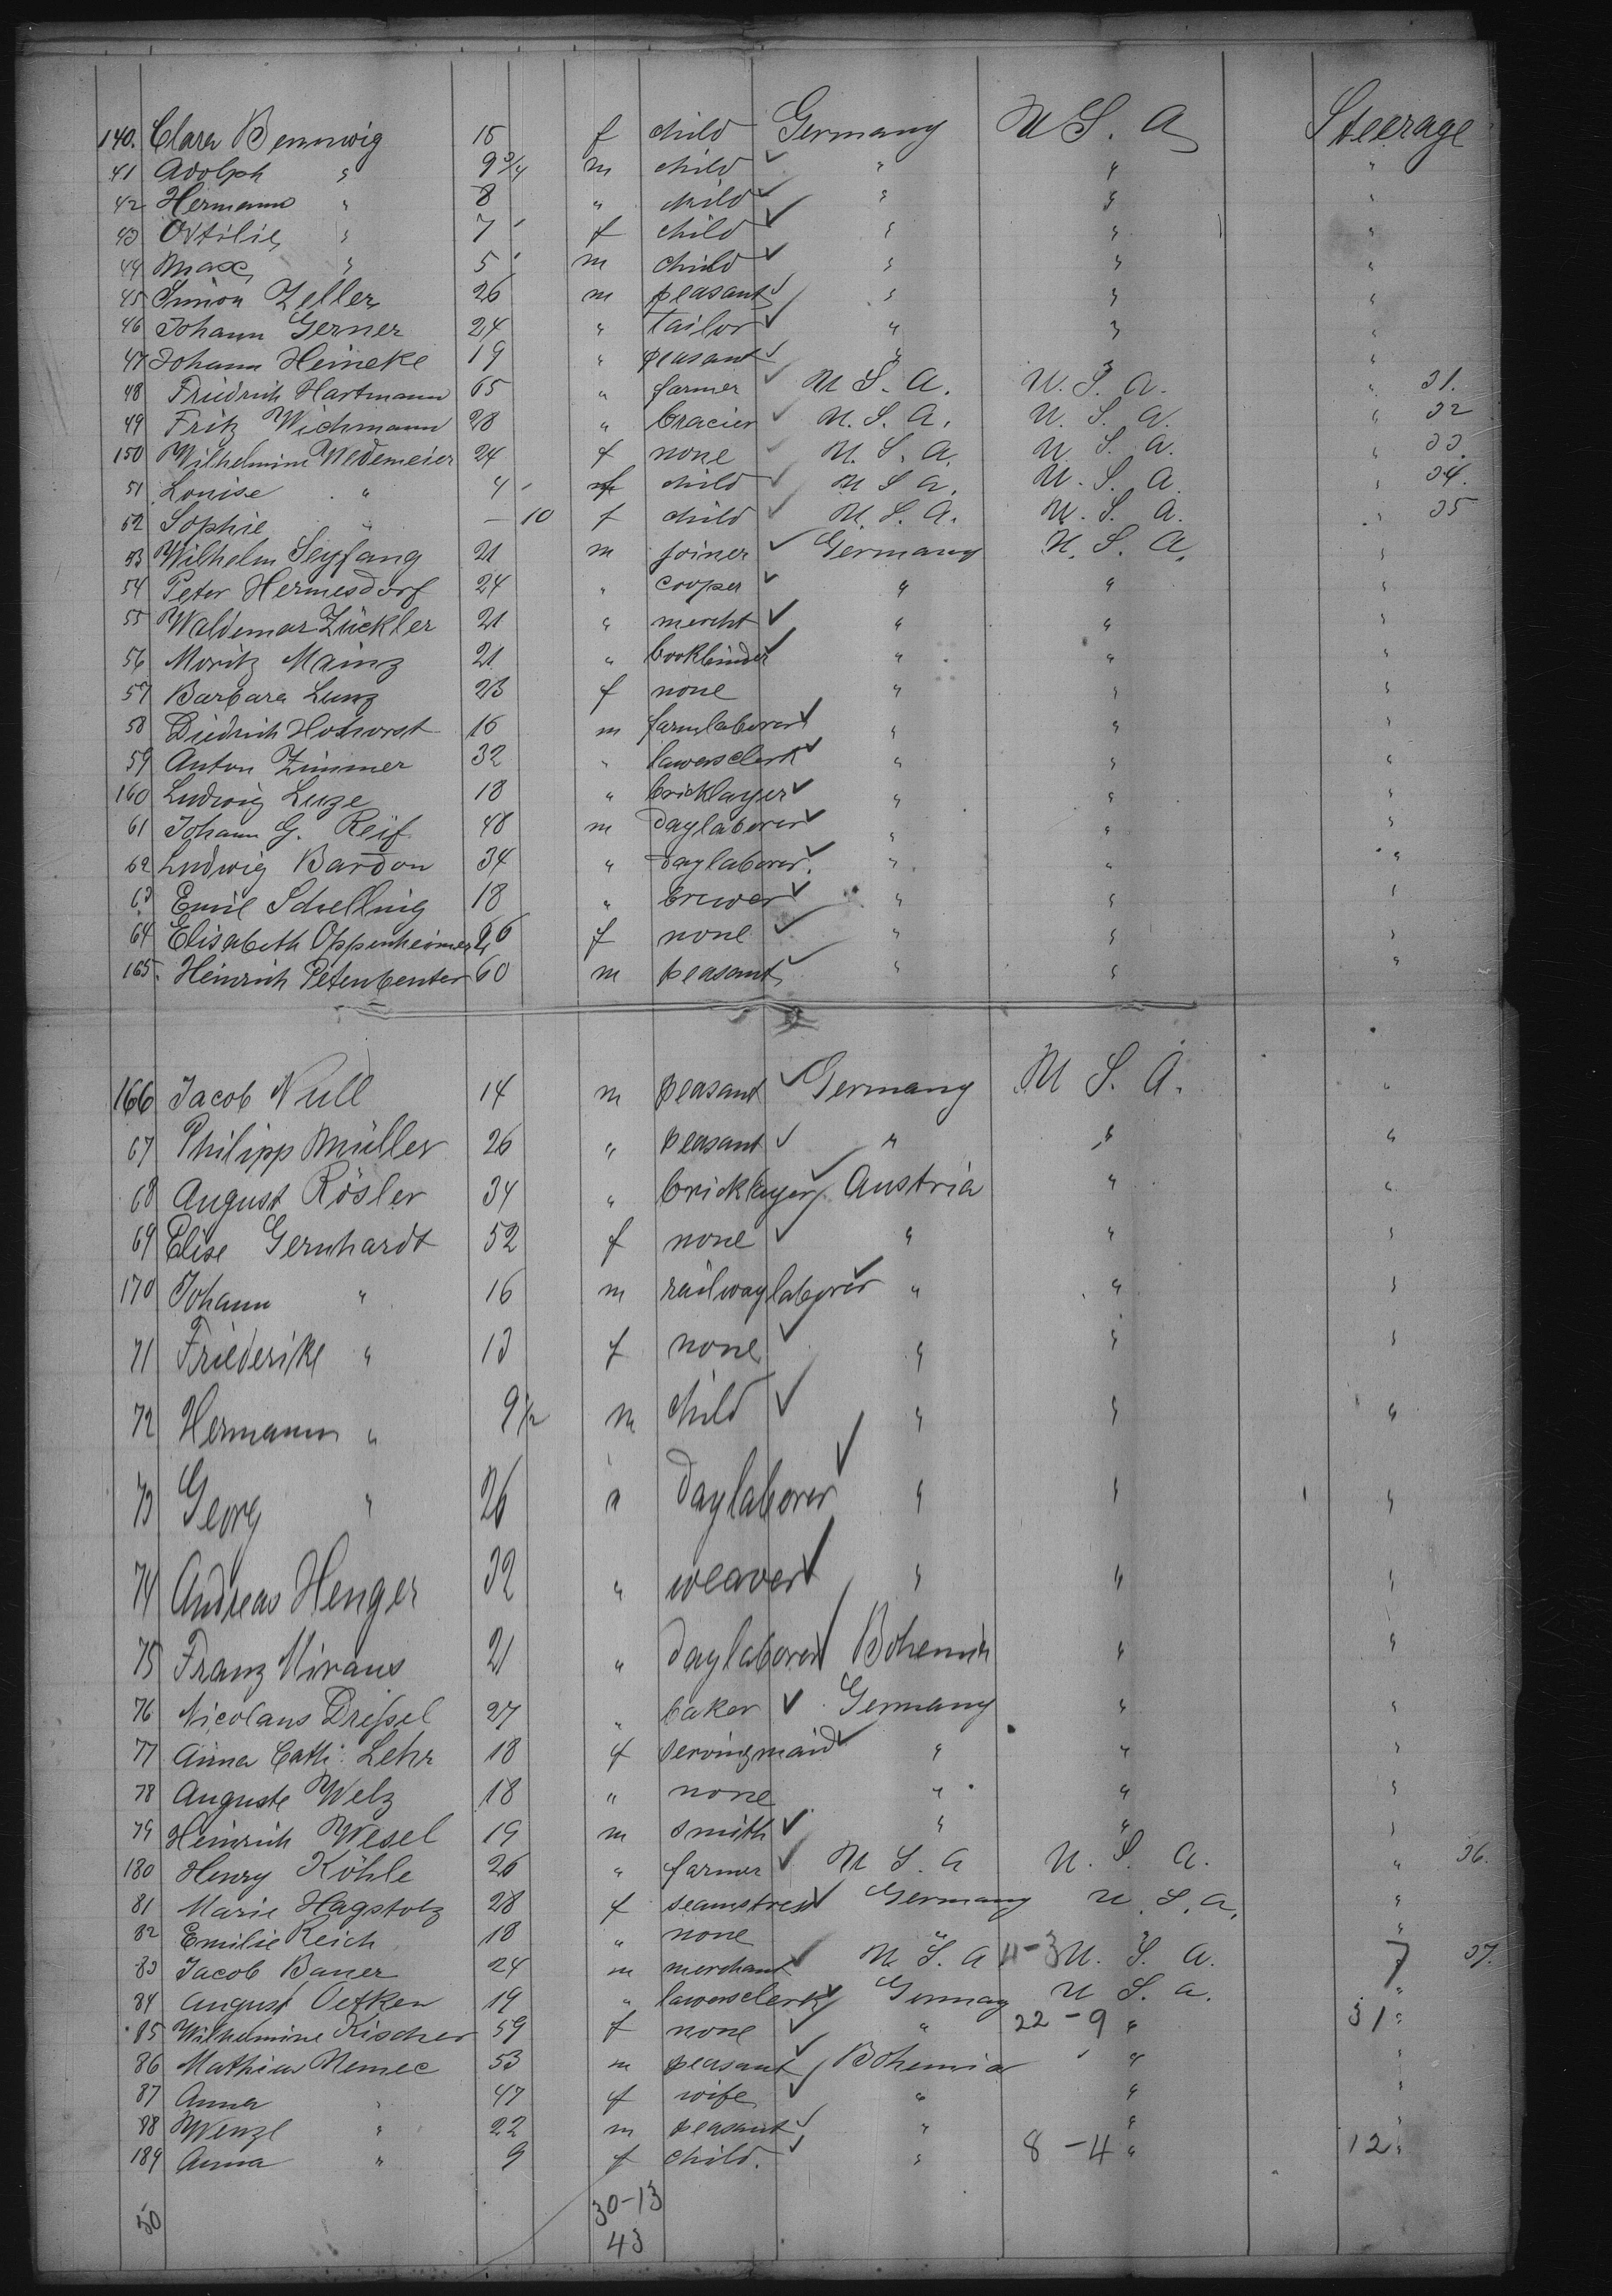 140. Clara Bennwig 15 f child Germany U S. A Steerage
41 Adolph " 9 3/4 m child " " "
42 Hermann " 8 " child " " "
43 Ottilie " 7 f child " " "
44 Max " 5 m child " " "
45 Simon Zeller 26 m peasant " " "
46 Johann Gerner 24 " Tailor " " "
47 Johann Heineke 19 " peasant " " "
48 Friedrich Hartmann 65 " farmer U S. A. U. S. A. " 31.
49 Fritz Wichmann 28 " bracier U. S. A. U. S. A. " 32
150 Wilhelmine Wedemeier 24 f none U. S. A. U. S. A. " 33.
51 Louise " 4 f child U S A. U. S. A. " 34.
52 Sophie " — 10 f child U. S. A. U. S. A. " 35
53 Wilhelm Seyfang 21 m joiner Germany U. S. A. "
54 Peter Hermesdorf 24 " cooper " " "
55 Waldemar Zückler 21 " mercht " " "
56 Moritz Mainz 21 " bookbinder " " "
57 Barbara Lunz 23 f none " " "
58 Diedrich Hohorst 16 m farmlaborer " " "
59 Anton Zimmer 32 " lawersclerk " " "
160 Ludwig Luze 18 " bricklayer " " "
61 Johann G. Reif 48 m daylaborer " " "
62 Ludwig Bardon 34 " daylaborer " " "
63 Emil Schelling 18 " brewer " " "
64 Elisabeth Oppenheimer 26 f none " " "
165. Heinrich Petenbenter 60 m peasant " " "
166 Jacob Null 14 m peasant Germany U S. A. "
67 Philipp Müller 26 " peasant " " "
68 August Rösler 34 " bricklayer Austria " "
69 Elise Gernhardt 52 f none " " "
170 Johann " 16 m railwaylaborer " " "
71 Friederike " 13 f none " " "
72 Hermann " 9 1/2 m child " " "
73 Georg " 26 " daylaborer " " "
74 Andreas Henger 32 " weaver " " "
75 Franz Miraus 21 " daylaborer Bohemia " "
76 Nicolaus Dreßel 27 " baker Germany " "
77 Anna Cath: Lehr 18 f servingmaid " " "
78 Auguste Welz 18 " none " " "
79 Heinrich Wesel 19 m smith " " "
180 Henry Köhle 26 " farmer U S. A U. S. A. " 36.
81 Marie Hagstolz 28 f seamstress Germany U. S. A. "
82 Emilie Reich 18 " none " " "
83 Jacob Bauer 24 m merchant U S. A 4-3 U. S. A. 7 37.
84 August Oetken 19 " lawersclerk Germany U S. A. "
85 Wilhelmine Kischer 59 f none " 22-9 " 31 "
86 Mathias Nemec 53 m peasant Bohemia " "
87 Anna " 47 f wife " " "
88 Wenzl " 22 m peasant " " "
189 Anna " 9 f child. " 8-4 " 12 "
50 30-13
43